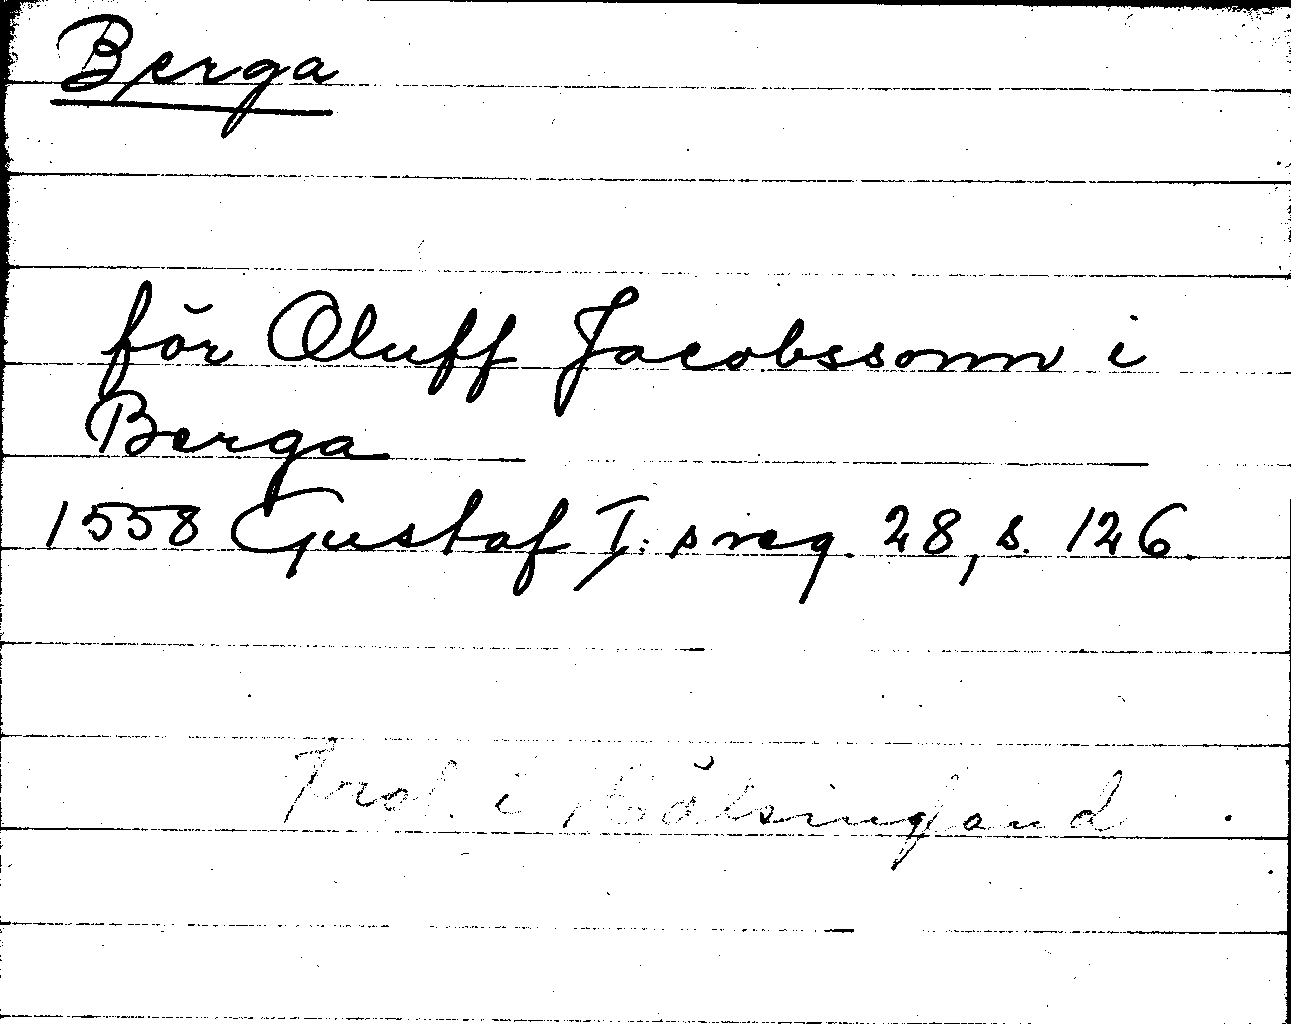 Berga
för Oluff Jacobssonn i
Berga
1558 Gustaf I:s reg. 28, s. 126.
Trol. i Hälsingland